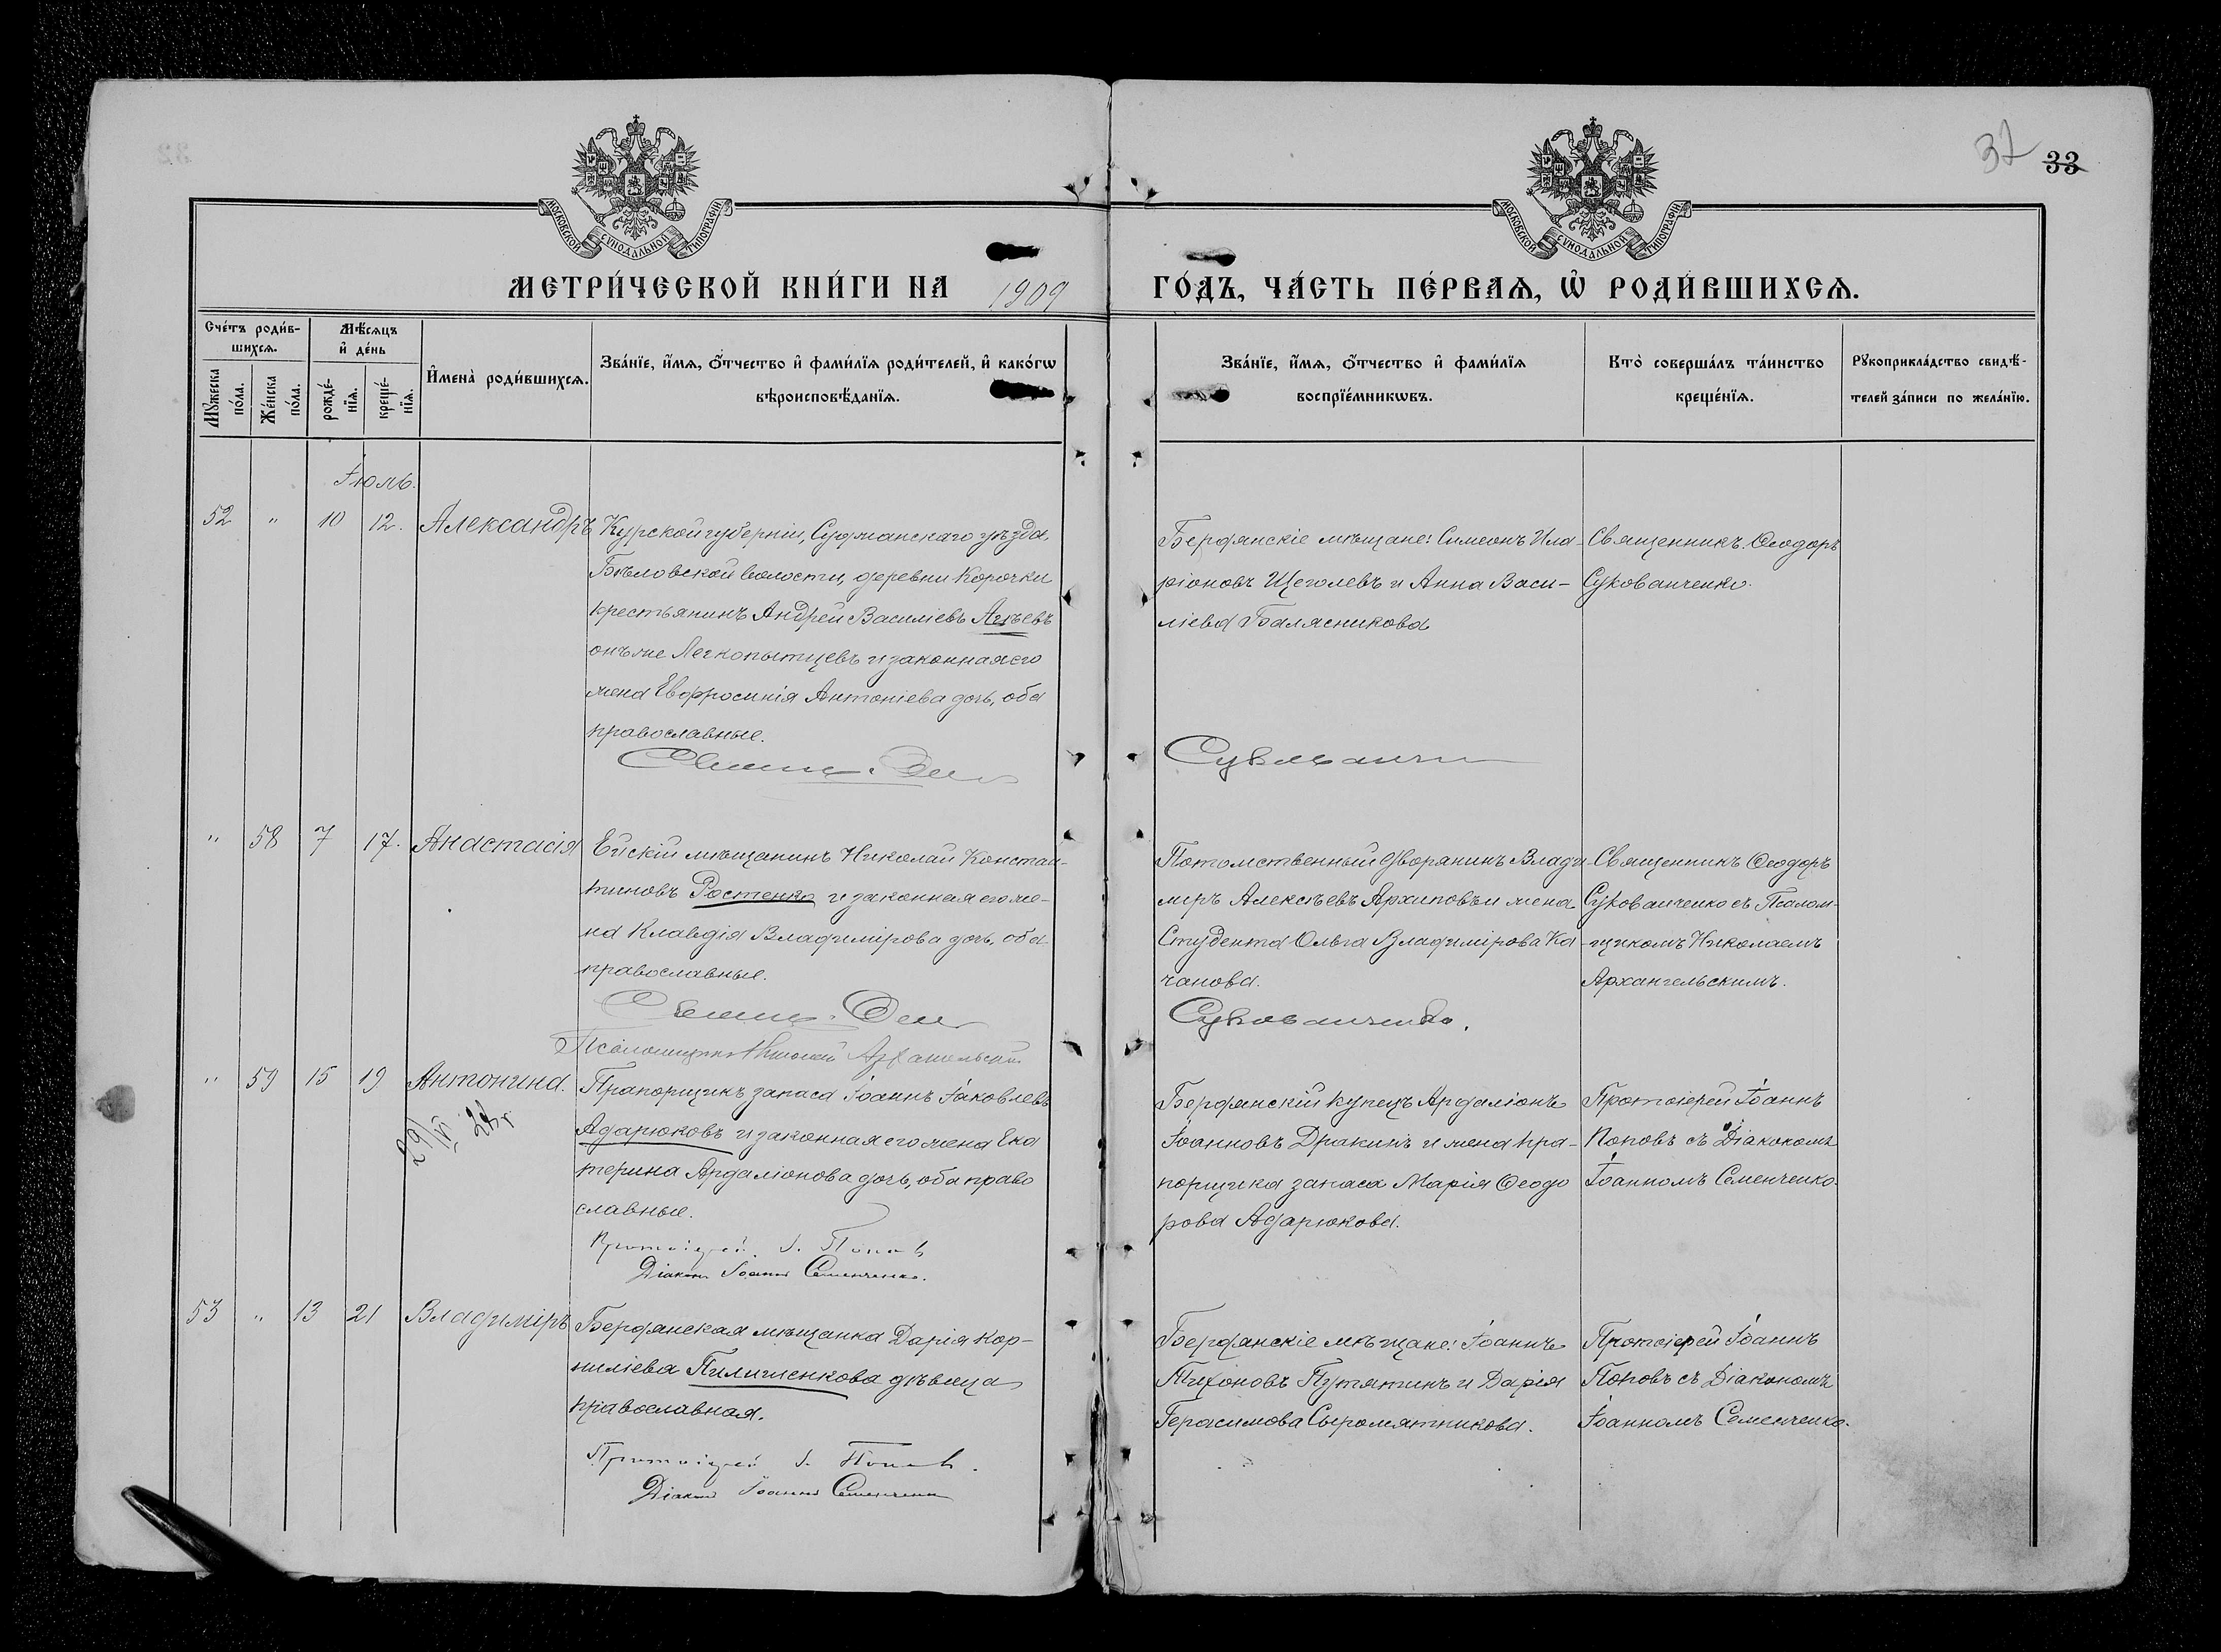 МОСКОВСКОЙ СѴНОДАЛЬНОЙ ТИПОГРАФІИ
МОСКОВСКОЙ СѴНОДАЛЬНОЙ ТИПОГРАФІИ
37 33
МЕТРИ́ЧЕСКОЙ КНИ́ГИ НА 1909 ГО́ДЪ, ЧА́СТЬ ПЕ́РВАѦ, Ѡ҆ РОДИ́ВШИХСѦ.
Сче́тъ роди́в-
шихсѧ.
Мꙋ́жеска по́ла.
Же́нска по́ла.
Мѣ́сѧцъ
и҆ де́нь
рожде́-
нїѧ.
креще́-
нїѧ.
И҆мена̀ роди́вшихсѧ.
Зва́нїе, и҆́мѧ, ѻ҆́тчество и҆ фами́лїѧ роди́телей, и҆ како́гѡ
вѣроисповѣ́данїѧ.
Зва́нїе, и҆́мѧ, ѻ҆́тчество и҆ фами́лїѧ
воспрїе́мникѡвъ.
Кто̀ соверша́лъ та́инство
креще́нїѧ.
Рꙋкоприкла́дство свидѣ́-
телей за́писи по жела́нїю.
Іюль.
52 " 10 12. Александръ
Курской губерніи, Суджанскаго уѣзда,
Бѣловской волости, деревни Корочки
крестьянинъ Андрей Василіевъ Агѣевъ
онъ же Легкопытцевъ и законная его
жена Евфросинія Антоніева дочь, оба
православные.
Бердянскіе мѣщане: Симеонъ Ила-
ріоновъ Щеголевъ и Анна Васи-
ліева Балясникова
Священникъ Ѳеодоръ
Сукованченко.
" 58 7 17. Анастасія
Ейскій мѣщанинъ Николай Констан-
тиновъ Ростенко и законная его же-
на Клавдія Владимірова дочь, оба
православные.
Псаломщикъ Николай Архангельскій
Потомственный дворянинъ Влади-
міръ Алексѣевъ Архиповъ и жена
Студента Ольга Владимірова Ка-
чанова.
Сукованченко.
Священникъ Ѳеодоръ
Сукованченко съ Псалом-
щикомъ Николаемъ
Архангельскимъ.
" 59 15 19 Антонина.
29/VI 24 г
Прапорщикъ запаса Іоаннъ Іаковлевъ
Адарюковъ и законная его жена Ека
терина Ардаліонова дочь, оба право
славные.
Протоіерей І. Поповъ
Діаконъ Іоаннъ Семенченко.
Бердянскій купецъ Ардаліонъ
Іоанновъ Дракинъ и жена пра-
порщика запаса Марія Ѳеодо
рова Адарюкова.
Протоіерей Іоаннъ
Поповъ съ Діакономъ
Іоанномъ Семенченко.
53 " 13 21 Владиміръ
Бердянская мѣщанка Дарія Кор-
ниліева Пилишенкова дѣвица
православная.
Протоіерей І. Поповъ.
Діаконъ Іоаннъ Семенченко
Бердянскіе мѣщане: Іоаннъ
Тихоновъ Путятинъ и Дарія
Герасимова Сыромятникова.
Протоіерей Іоаннъ
Поповъ съ Діакономъ
Іоанномъ Семенченко.